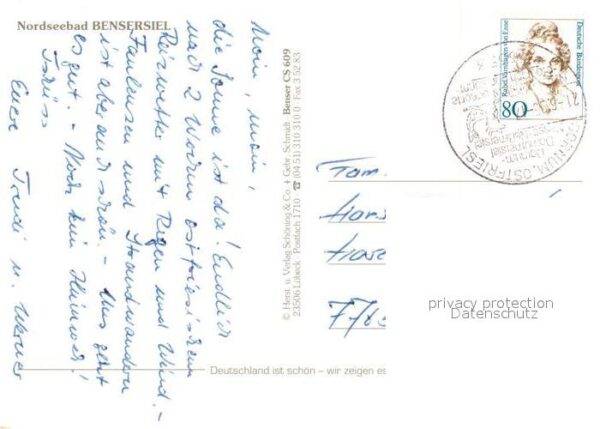 Nordseebad BENSERSIEL
Moin, moin,
die Sonne ist da! Endlich
nach 2 Wochen ostfriesischem
Reiswetter mit Regen und Wind. -
Faulenzen und Strandwandern
ist aber auch schön. - Uns geht
es gut. - Noch kein Heimweh!
Tschüss
Eure Trudi u. Werner
© Herst. u. Verlag Schöning & Co. + Gebr. Schmidt Benser CS 609
23506 Lübeck · Postfach 1710 · ☎ (04 51) 310 310 0 · Fax 3 52 83
Deutschland ist schön – wir zeigen es
Deutsche Bundespost
Rahel Varnhagen von Ense
80
DORNUM, OSTFRIESL
Fam.
Hans
privacy protection
Datenschutz